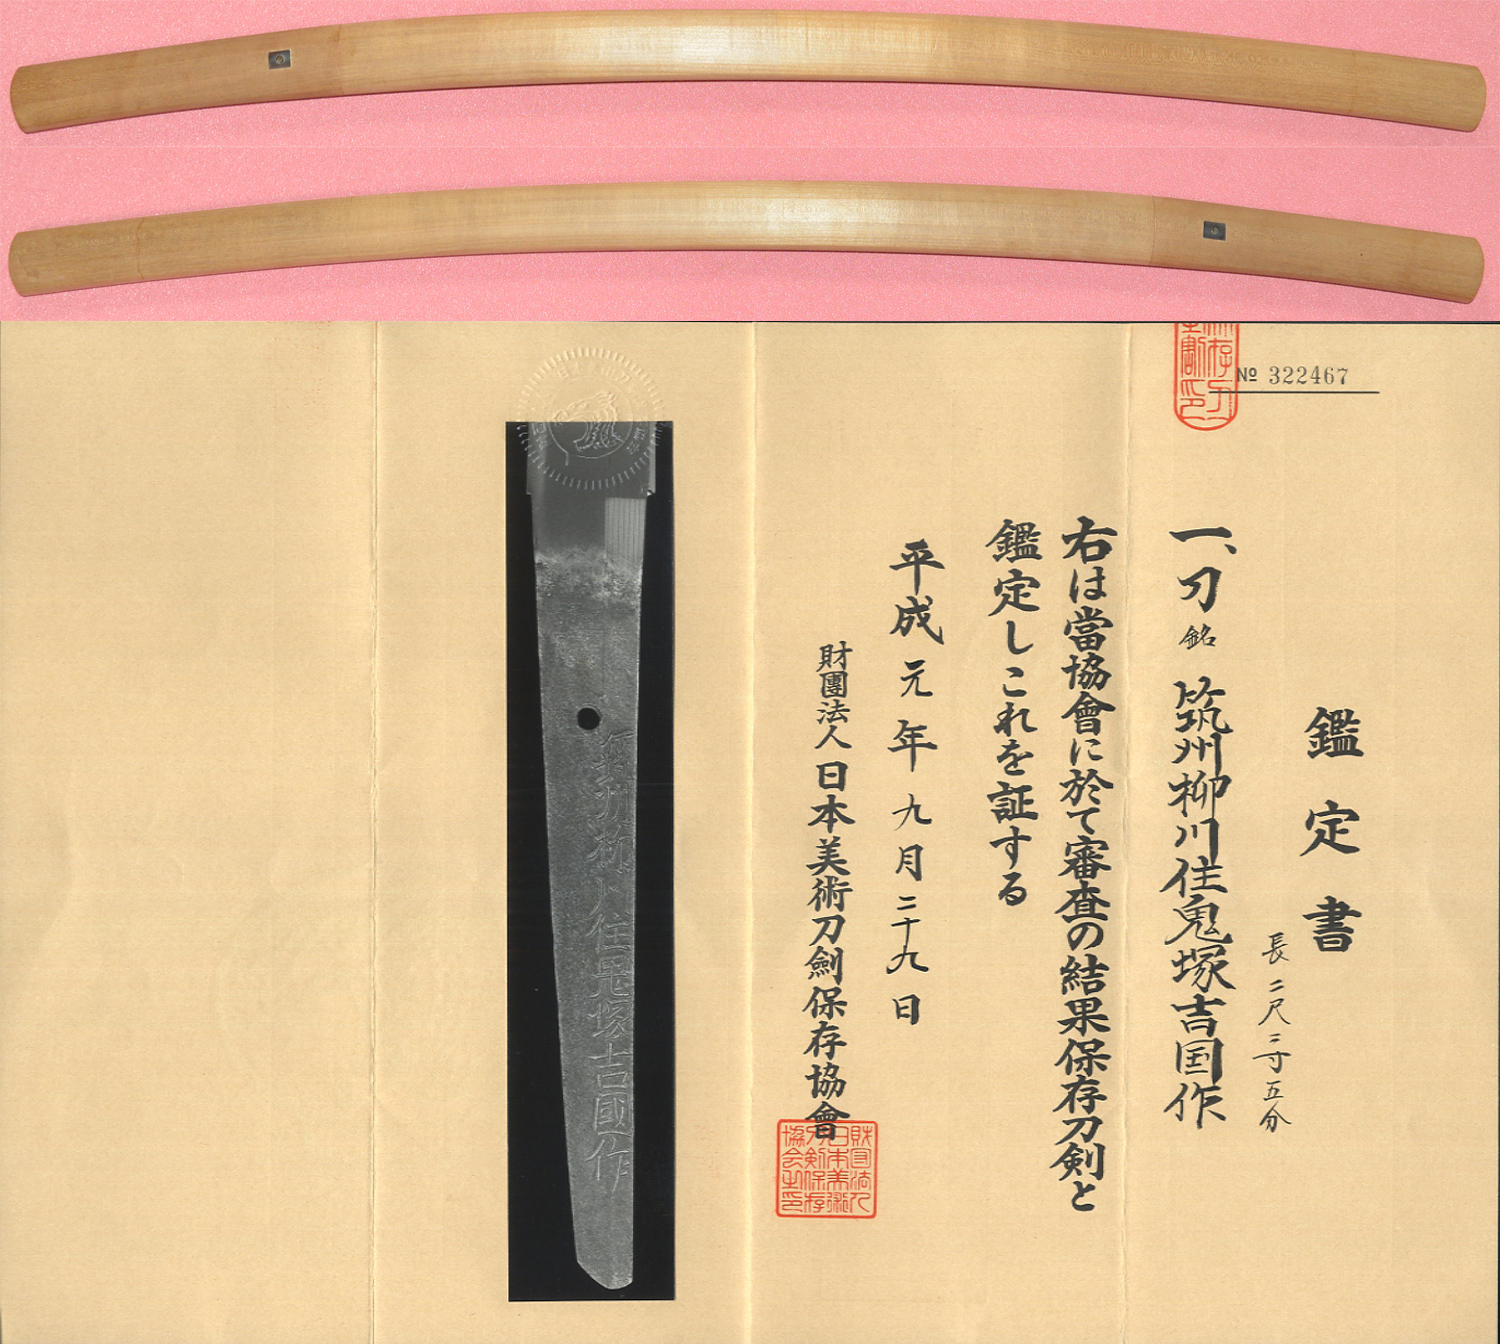 № 322467
鑑定書
長二尺二寸五分
一、刀 銘 筑州柳川住鬼塚吉国作
右は當協會に於て審査の結果保存刀剣と
鑑定しこれを証する
平成元年九月二十九日
財團法人日本美術刀劍保存協會
財団法人
日本美術
刀剣保存
協会之印
筑州柳川住鬼塚吉國作